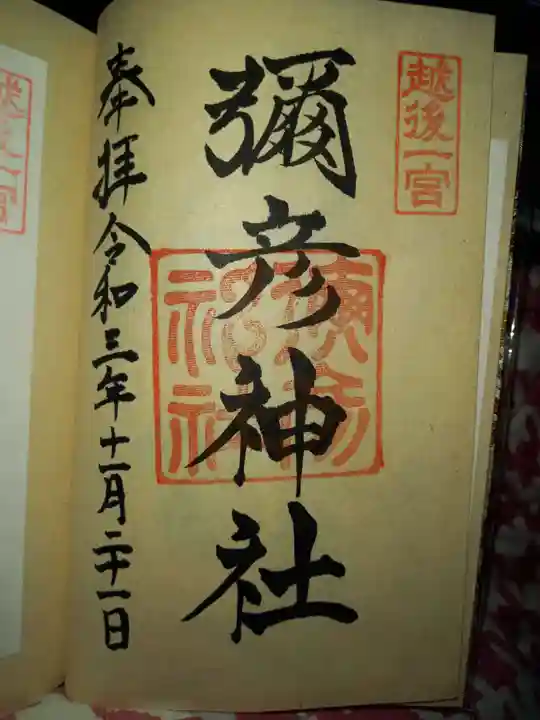 越後一宮
彌彦神社
奉拝令和三年十一月二十一日